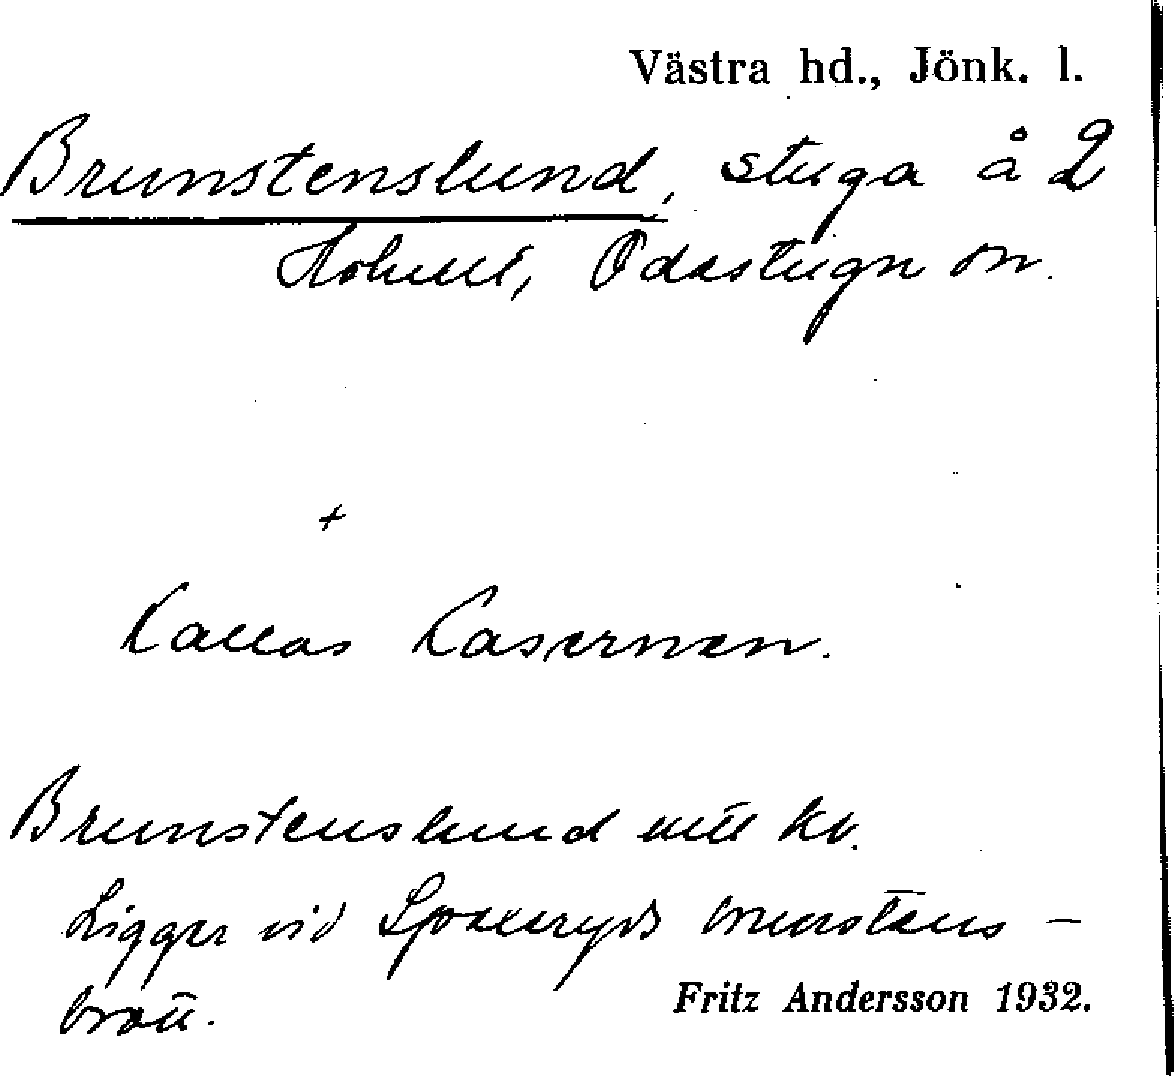 Västra hd., Jönk. l.
Brunstenslund, stuga å 2
Hohult, Ödestugu sn.
+
Kallas Kasernen.
Brunstenslund
Ligger vid Spexeryds brunstens-
brott.
Fritz Andersson 1932.